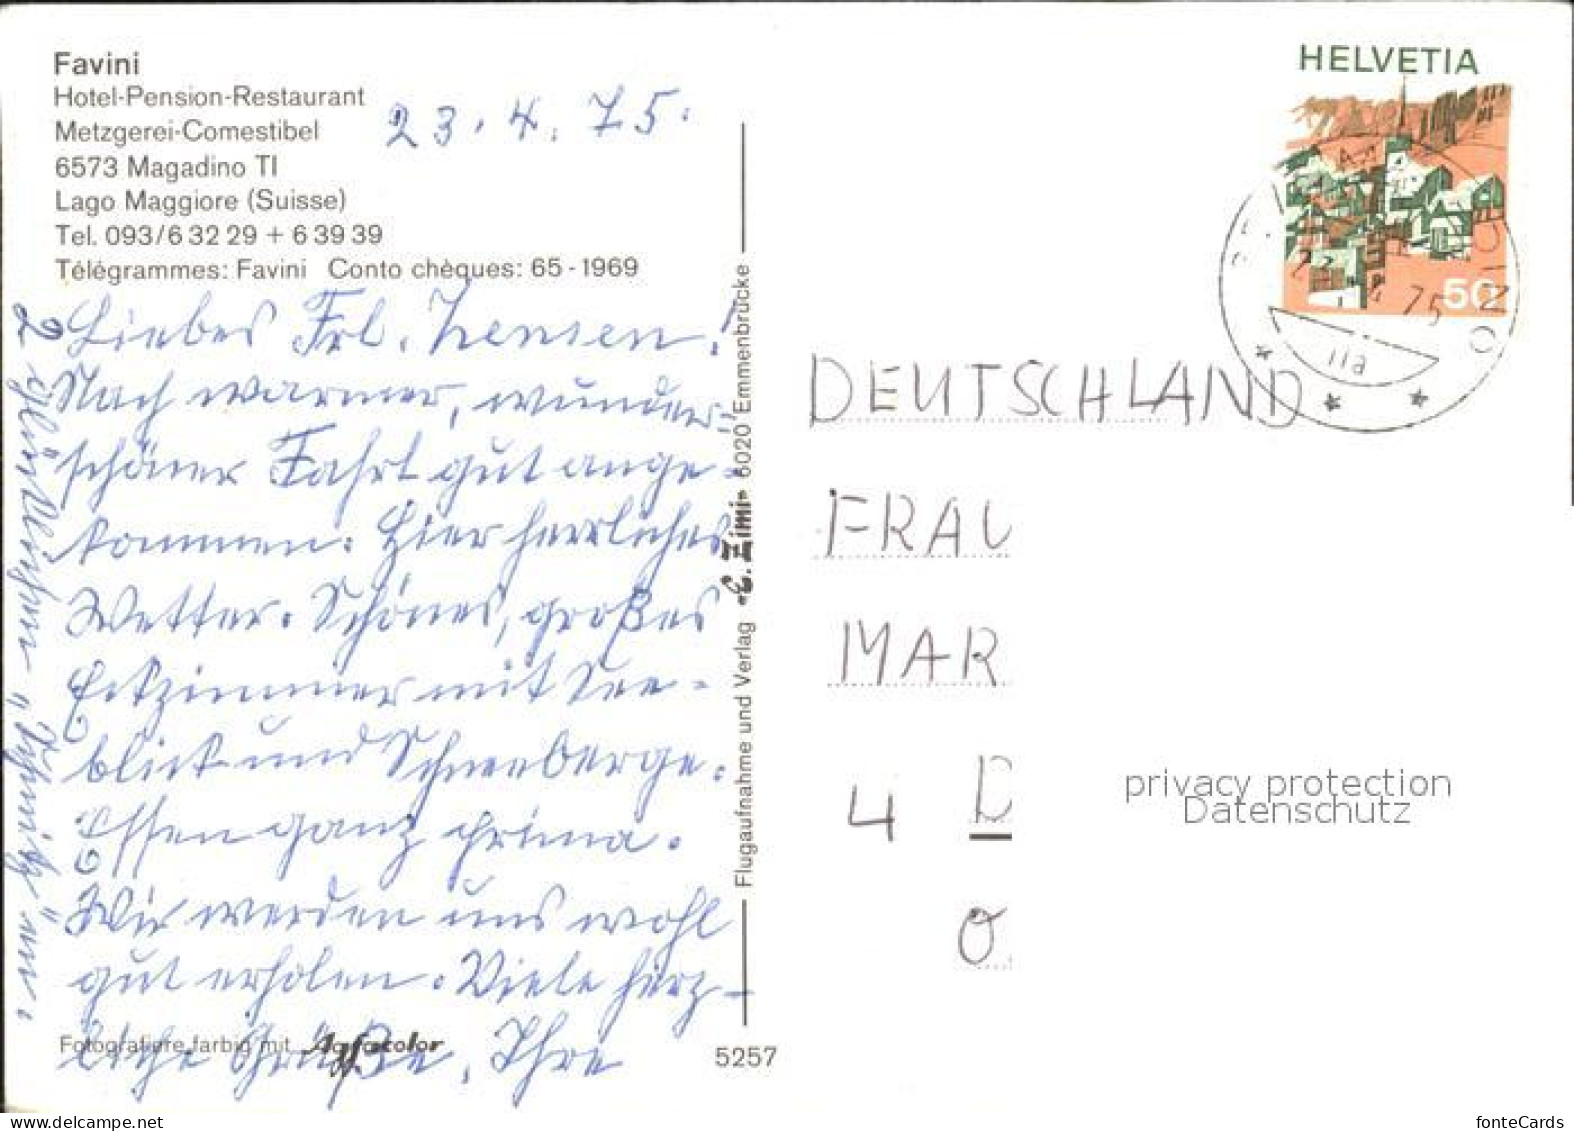 Favini
Hotel-Pension-Restaurant
Metzgerei-Comestibel
6573 Magadino TI
Lago Maggiore (Suisse)
Tel. 093/6 32 29 + 6 39 39
Télégrammes: Favini Conto chèques: 65-1969
23. 4. 75.
Liebes Frl. Hensen!
Nach warmer, wunder-
schöner Fahrt gut ange-
kommen. Hier herrliches
Wetter. Schönes, großes
Eckzimmer mit See-
blick und Schneeberge.
Essen ganz prima.
Wir werden uns wohl
gut erholen. Viele herz-
liche Grüße, Ihre
2
Fotografiere farbig mit Agfacolor
Flugaufnahme und Verlag «E. Zimi» 6020 Emmenbrücke
5257
HELVETIA
50
75
DEUTSCHLAND
FRAU
MAR
4 D
O
privacy protection
Datenschutz
www.delcampe.net
fonteCards